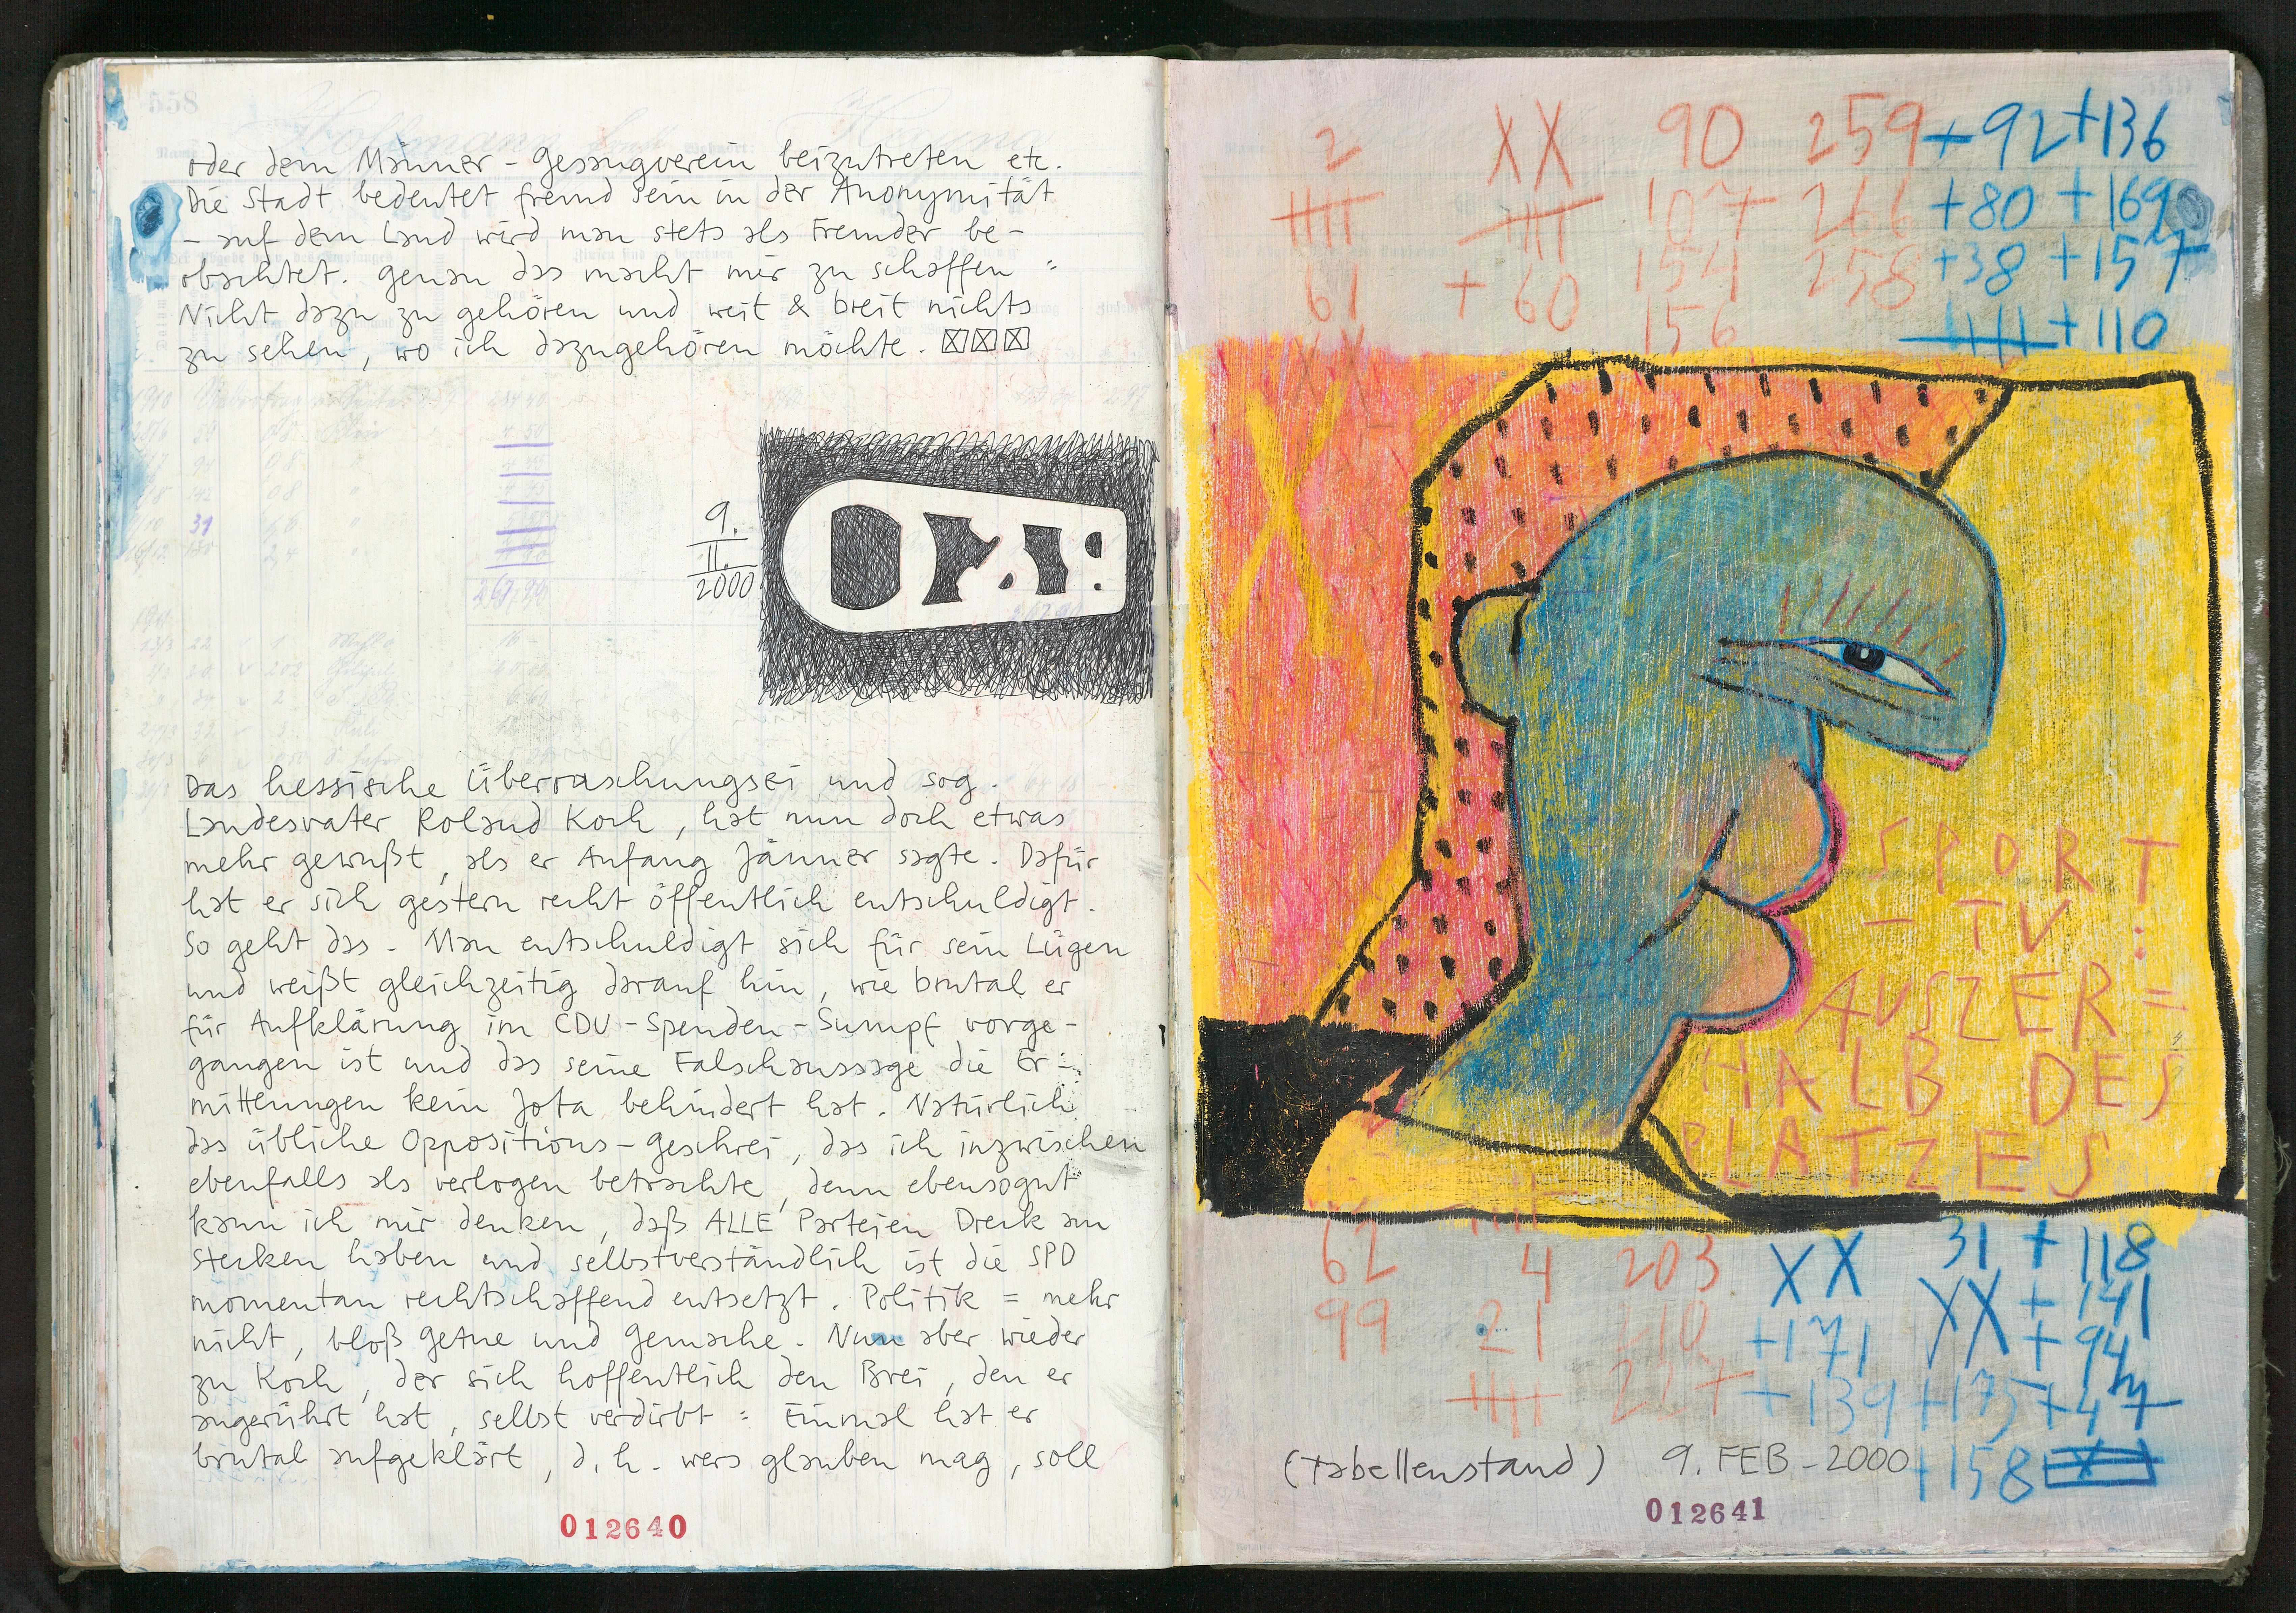 558
oder dem Männer-Gesangverein beizutreten etc.
Die Stadt bedeutet fremd sein in der Anonymität
– auf dem Land wird man stets als Fremder be-
obachtet. Genau das macht mir zu schaffen :
Nicht dazu zu gehören und weit & breit nichts
zu sehen, wo ich dazugehören möchte.
9.
II.
2000
Das hessische Überraschungsei und sog.
Landesvater Roland Koch, hat nun doch etwas
mehr gewußt, als er Anfang Jänner sagte. Dafür
hat er sich gestern recht öffentlich entschuldigt.
So geht das - Man entschuldigt sich für sein Lügen
und weißt gleichzeitig darauf hin, wie brutal er
für Aufklärung im CDU-Spenden-Sumpf vorge-
gangen ist und das seine Falschaussage die Er-
mittlungen kein Jota behindert hat. Natürlich
das übliche Oppositions-Geschrei, das ich inzwischen
ebenfalls als verlogen betrachte, denn ebensogut
kann ich mir denken, daß ALLE Parteien Dreck am
Stecken haben und selbstverständlich ist die SPD
momentan rechtschaffend entsetzt. Politik = mehr
nicht, bloß Getue und Gemache. Nun aber wieder
zu Koch, der sich hoffentlich den Brei, den er
angerührt hat, selbst verdirbt : Einmal hat er
brutal aufgeklärt, d.h. wers glauben mag, soll
012640
2 XX 90 259 +92 +136
107 266 +80 +169
61 +60 154 258 +38 +157
156 +110
XX
SPORT
– TV :
AUSZER=
HALB DES
PLATZES
62 4 203 XX 31 + 118
99 21 210 +171 XX + 141
+ 94
227 +139 +175 +47
(Tabellenstand) 9. FEB - 2000 +158 X
012641